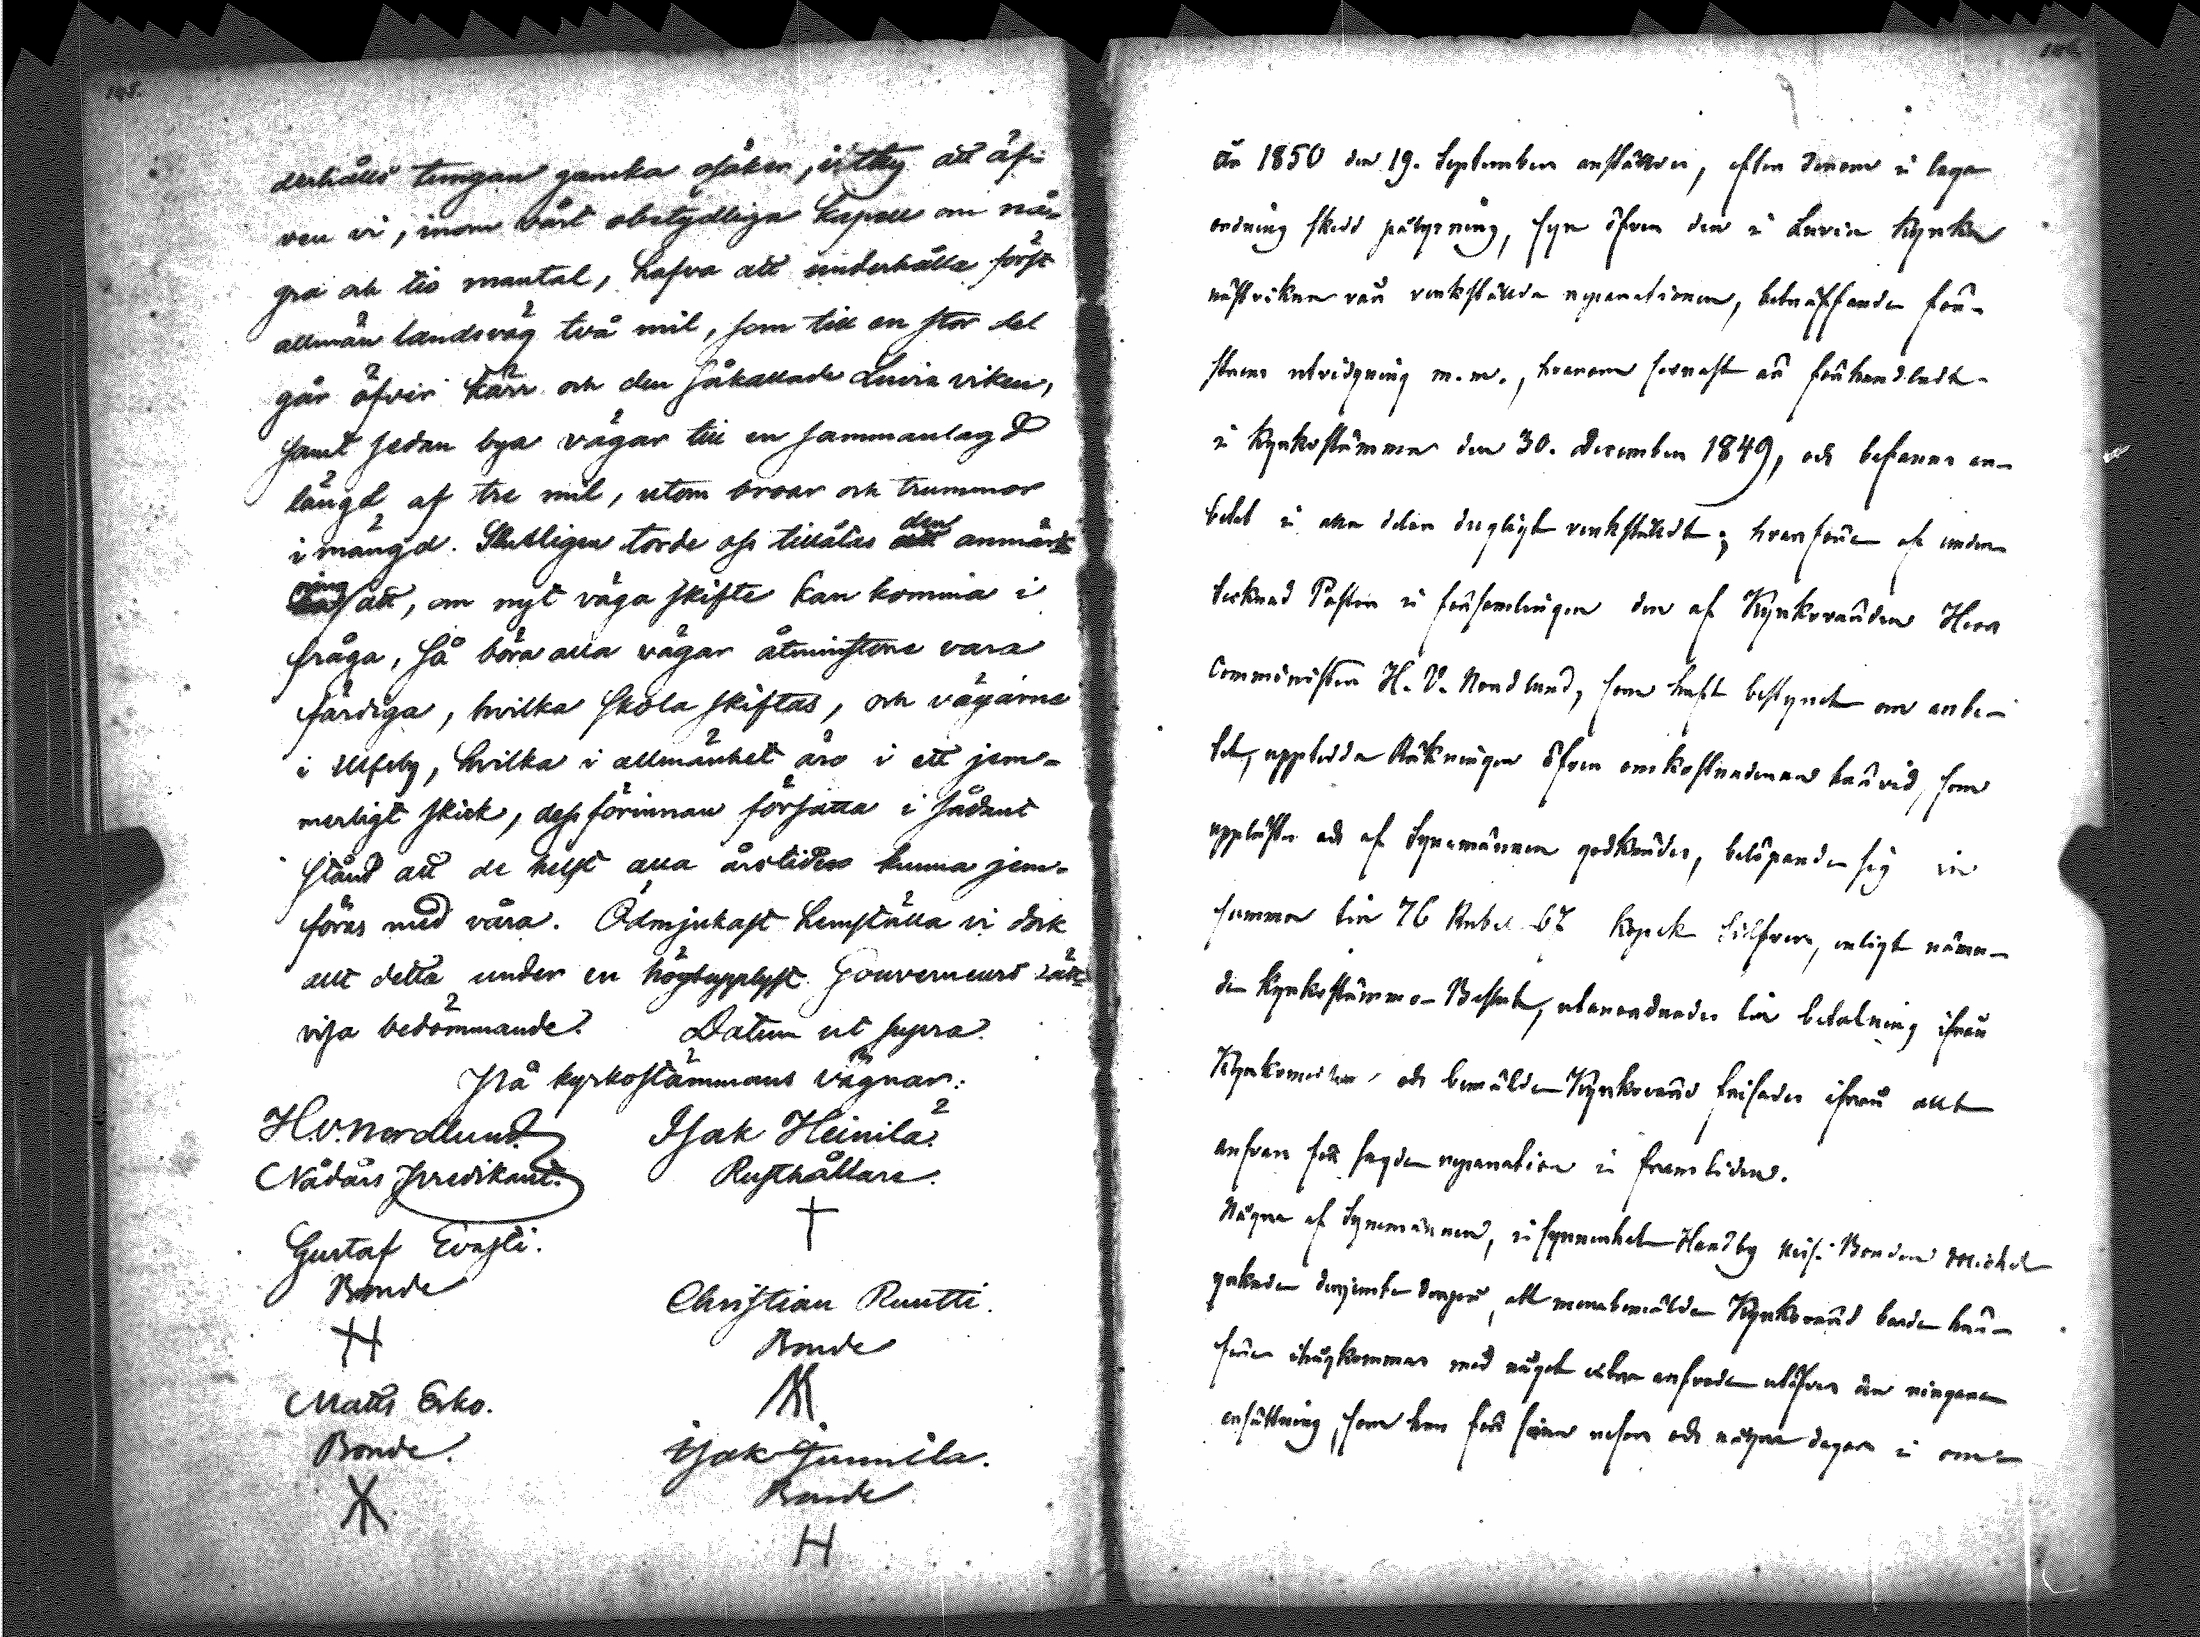 145.
derhålls tungan ganska osäker, ity att äf-
ven vi, inom vårt obetydliga kapell om nå-
gra och tio mantal, hafva att underhålla först
allmän landsväg två mil, som till en stor del
går öfver kärr och den såkallade Luvia viken,
samt sedan bya vägar till en sammanlagd
längd af tre mil, utom broar och trummor
i mängd. Slutligen torde oss tillåtas den anmärk
ning att, om nyt väga skifte kan komma i
fråga, så böra alla vägar åtminstone vara
färdiga, hvilka skola skiftas, och vägarne
i Ulfsby, hvilka i allmänhet äro i ett jem-
merligt skick, dessförinnan försatta i sådant
stånd att de helst alla årstider kunna jem-
föras med våra. Ödmjukast hemställa vi dock
allt detta under en högtupplyst Gouverneurs rätt-
visa bedömmande. Datum ut supra.
På kyrkostämmans vägnar:
H.V. Nordlund. Isak Heinilä.
Nådårs Predikant. Rusthållare.
Gustaf Evasti.
Bonde Christian Ruutti.
Bonde
Matts Erko.
Bonde. Isak Junnila.
Bonde
H
År 1850 den 19. September anställdes, efter derom i laga
ordning skedd pålysning, syn öfver den i Luvia Kyrka
nästvikna vår verkställda reparationen, beträffande fön-
strens utvidgning m.m., hvarom senast är förhandladt
i Kyrkostämman den 30. December 1849, och befanns ar-
betet i alla delar dugligt verkstäldt; hvarföre af under-
tecknad Pastor i församlingen den af Kyrkovärden Herr
Comministern H. V. Nordlund, som haft bestyret om arbe-
tet, upptedda Räkningen öfver omkostnaderna härvid, som
upplästes och af Synemännen godkändes, belöpande sig in
summa till 76 Rubel 67 Kopek Silfver, enligt nämn-
de Kyrkostämmo-Beslut, utanordnades till betalning ifrån
Kyrkomedlen, och bemälde Kyrkovärd frisades ifrån allt
ansvar för sagde reparation i framtiden.
Några af Synemännen, i synnerhet Handby Bonden Michel
yrkade derjemte derpå, att merabemälde Kyrkovärd borde här-
före ihugkommas med något utöfver den ringare
ersättning, som han för sina resor och några dagars i om-